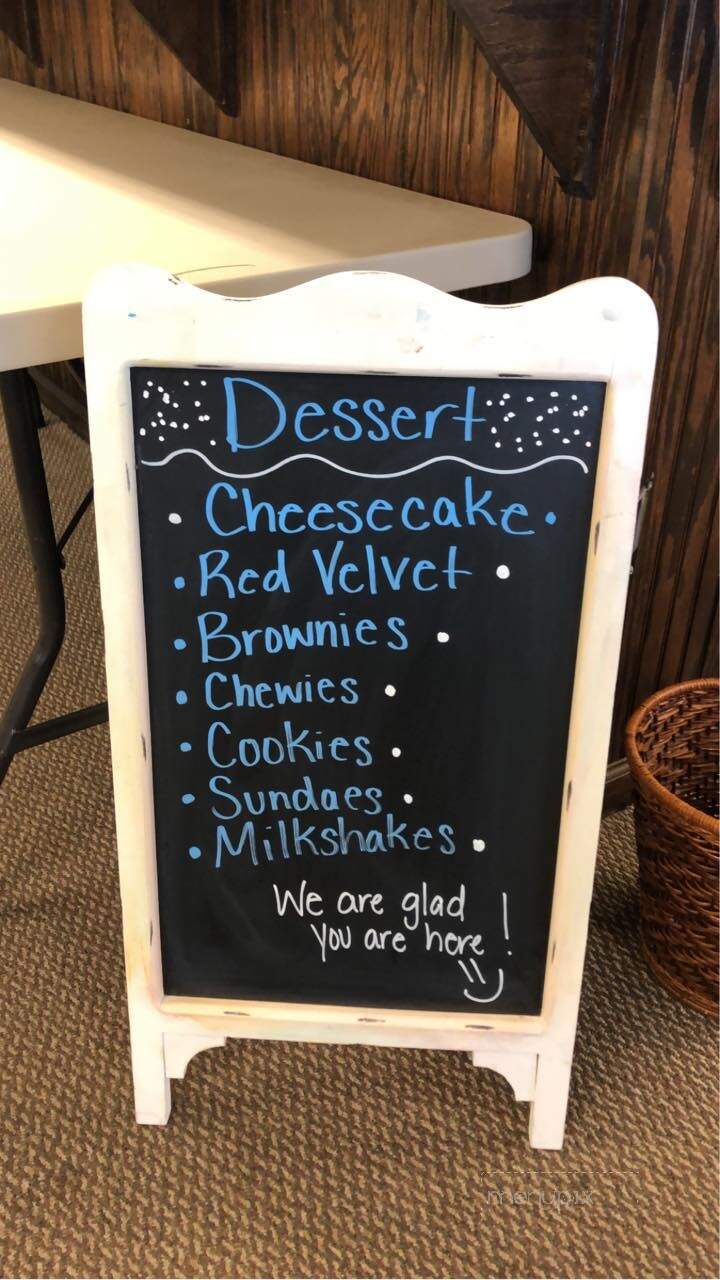 Dessert
• Cheesecake •
• Red Velvet •
• Brownies •
• Chewies •
• Cookies •
• Sundaes •
• Milkshakes •
We are glad
you are here!
menupix